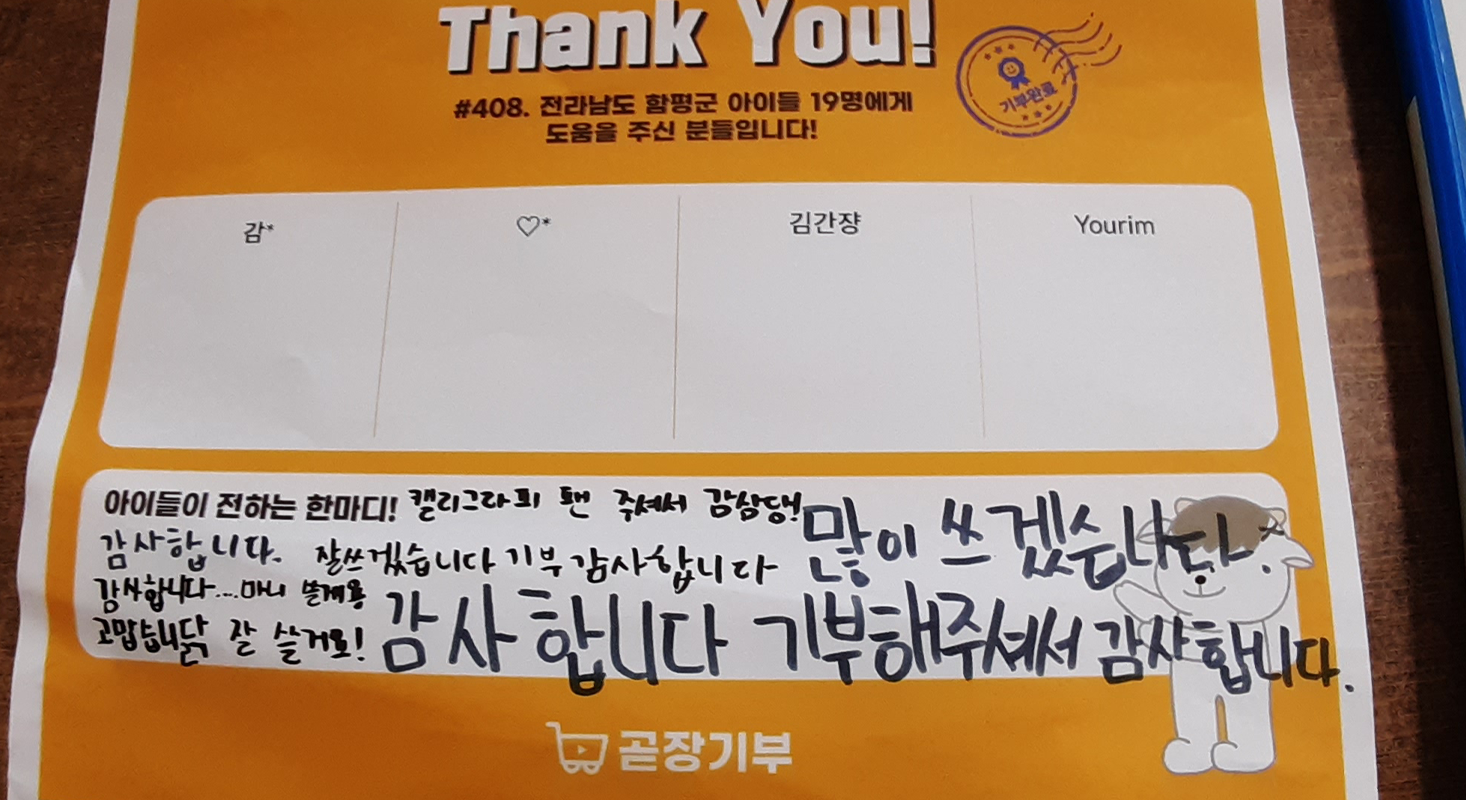 Thank You!
#408. 전라남도 함평군 아이들 19명에게
도움을 주신 분들입니다!
기부완료
감* ♡* 김간쟝 Yourim
아이들이 전하는 한마디! 캘리그라피 팬 주셔서 감삼댕!
많이 쓰겠습니다.
감사합니다. 잘쓰겠습니다 기부 감사합니다
감사합니다....마니 쓸게용
고맙습니닭 잘 쓸거로!
감사합니다 기부해주셔서 감사합니다.
곧장기부